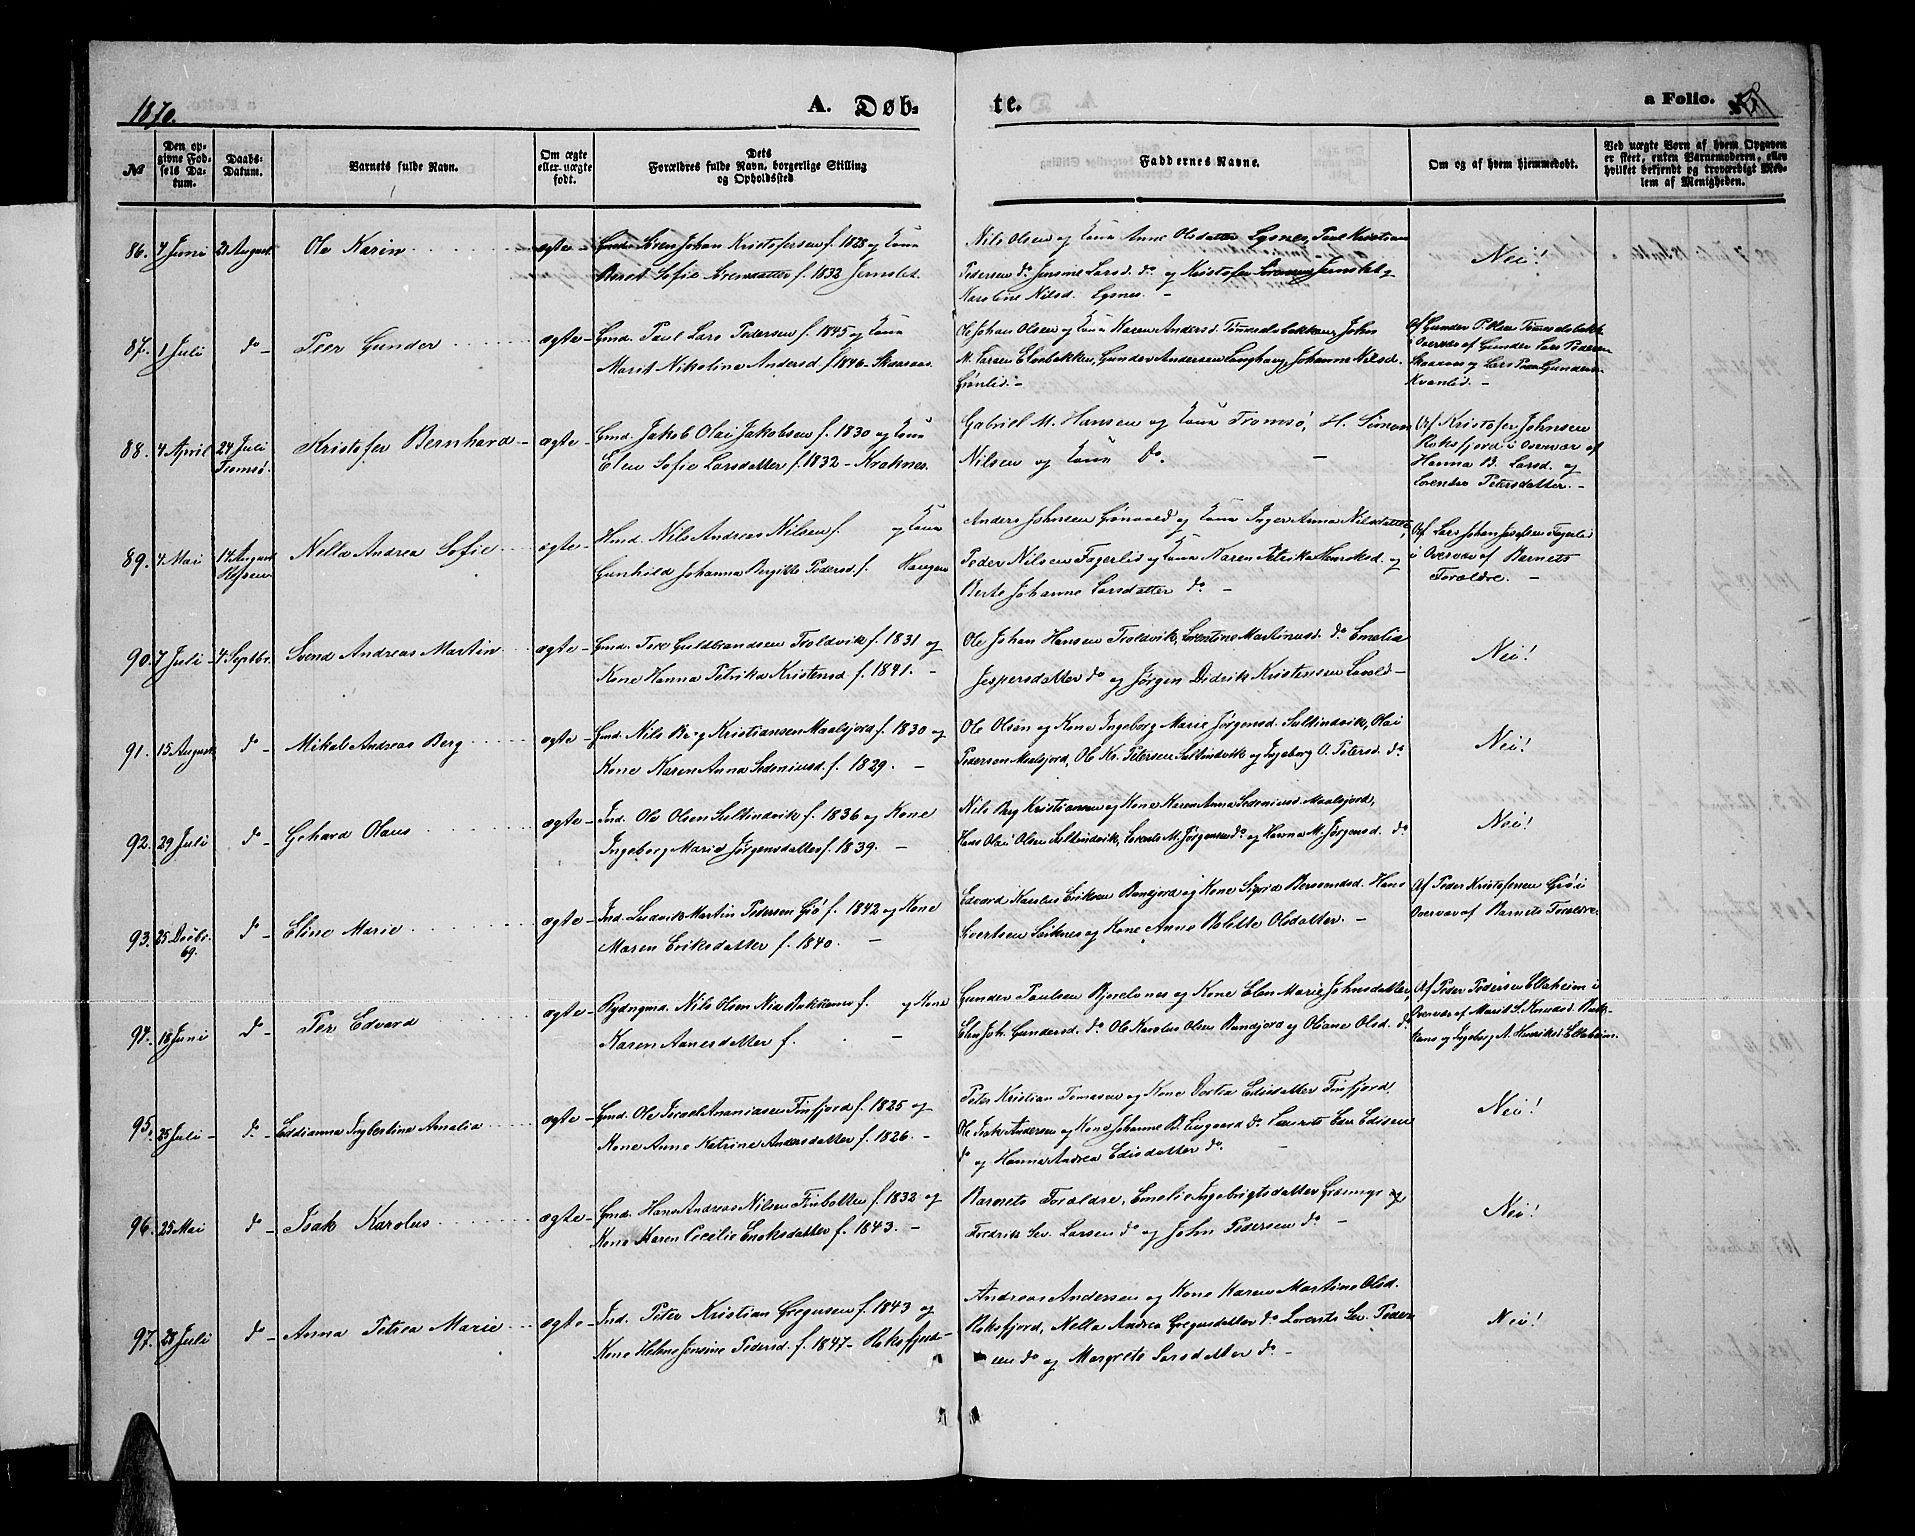 1870.
A. Døb-
te.
a Folio.
№
Den op-
givne Fød-
sels Da-
tum.
Daabs-
Datum.
Barnets fulde Navn.
Om ægte
eller uægte
født.
Dets
Forældres fulde Navn, borgerlige Stilling
og Opholdssted
Faddernes Navne.
Om og af hvem hjemmedøbt.
Ved uægte Børn af hvem Opgaven
er skeet, enten Barnemoderen, eller
hvilket bekjendt og troværdigt Med-
lem af Menigheden.
86. 4 Juni 21 August Ole Karin ægte Gmd. Søren Johan Kristofersen f. 1828 og Kone
Beret Sofie Sørensdatter f. 1832 Jernslet.
Nils Olsen og Kone Anne Olsdatter Lysnes, Paul Kristian
Pedersen do Jensine Larsd. do og Kristofer Sørensen Jernslet og
Karoline Nilsd. Lysnes. -
Nei!
87. 1 Juli do - Peer Gunder ægte Gmd. Paul Lars Pedersen f. 1845 og Kone
Marit Nikoline Andersd. f. 1846 - Skaanaas.
Ole Johan Olsen og Kone Karen Andersd. Tømmedalsbakken, John
M. Larsen Elvebakken, Gunder Andersen Langhaug, Johanne Nilsd.
Grønlid. -
Af Gunder P. Olsen
i Overvær af Gunder Lars Pedersen
og Lars Peder Gunders.
Kvanlid. -
88. 4 April 24 Juli
Tromsø. Kristofer Bernhard - ægte - Gmd. Jakob Olai Jakobsen f. 1830 og Kone
Elen Sofie Larsdatter f. 1832 - Kraknes.
Gabriel M. Hansen og Kone Tromsø, H. Simon
Nilsen og Kone do. -
Af Kristofer Johnsen
Roksfjord i Overvær af
Hanna B. Larsd. og
Lorentse Petersdatter. -
89. 4 Mai 14 August
Nella Andrea Sofie ægte - Hmd. Nils Andreas Nilsen f. og Kone
Gunhild Johanna Bergitte Pedersd. f. Haugen
Anders Johnsen Grønaaed og Kone Inger Anna Nilsdatter,
Peder Nilsen Fagerlid og Kone Karen Petrika Hansd. og
Berte Johanne Larsdatter do -
Af Lars Johan Josefsen Fagerlid
i Overvær af Barnets
Forældre. -
90. 7 Juli 4 Septbr. Svend Andreas Martin ægte - Gmd. Tore Guldbrandsen Troldvik f. 1831 og
Kone Hanna Petrika Kristensd f. 1841. -
Ole Johan Hansen Troldvik, Lorentine Martinusd. do Emelie
Jespersdatter do og Jørgen Didrik Kristensen Løvold -
Nei!
91. 15 August do - Mikal Andreas Berg ægte - Gmd. Nils Berg Kristiansen Maalsjord f. 1830 og
Kone Karen Anna Sedeniusd. f. 1829. -
Ole Olsen og Kone Ingeborg Marie Jørgensd. Sultindvik, Olai
Pederson Maalsjord, Ole Kr. Petersen Sultindvik og Ingeborg O. Petersd. do
Nei!
92. 29 Juli do - Gehard Olaus ægte - Ind. Ole Olsen Sultindvik f. 1836 og Kone
Ingeborg Marie Jørgensdatter f. 1839. -
Nils Berg Kristiansen og Kone Karen Anna Sedeniusd. Maalsjord,
Hans Olai Olsen Sultindvik, Lorents M. Jørgensen do og Hanna M. Jørgensd. do
Nei!
93. 25 Decbr.
69. do - Eline Marie ægte - Ind. Ludvik Martin Pedersen Giø f. 1842 og Kone
Maren Eriksdatter f. 1840. -
Edvard Karolus Eriksen Bunkjord og Kone Sigrid Berentsd. Hans
Sivertsen Leiknes og Kone Anne Bolette Olsdatter. -
Af Peder Kristofersen Giø i
Overvær af Barnets Forældre.
94. 18 Juni do - Per Edvard ægte - Rydngmd. Nils Olsen Nia Bakkemo f. og Kone
Karen Aanesdatter f. -
Gunder Paulsen Bjorelvnes og Kone Elen Marie Johnsdatter,
Elen Joh. Gundersd. do Ole Karolus Olsen Bunkjord og Oliane Olsd. do
Af Peder Pedersen Elteheim i
Overvær af Marit S. Knudsd. Bak-
og Ingeborg A. Henriksd. Elteheim.
95. 25 Juli - do - Eddianna Ingbertine Amalia ægte - Gmd. Ole Israel Ananiasen Finfjord f. 1825 og
Kone Anne Katrine Andersdatter f. 1826. -
Peter Kristian Tomasen og Kone Dortia Edisdatter Finfjord,
Ole Andersen og Kone Johanne B. do Laurits Edv. Edisen
do og Hanna Andrea Edisdatter do -
Nei!
96. 25 Mai do - Isak Karolus ægte - Gmd. Hans Andreas Nilsen Finbotten f. 1832 og
Kone Karen Cecilie Enoksdatter f. 1843. -
Barnets Forældre, Emelie Ingebrigtsdatter Græsmyr og
Fredrik Sev. Larsen do og John Pedersen do -
Nei!
97. 28 Juli do - Anna Petrea Marie ægte - Ind. Peter Kristian Gregusen f. 1843 og
Kone Helene Jensine Pedersd. f. 1847 - Roksfjord -
Andreas Andersen og Kone Karen Martine Olsd.
Roksfjord, Nella Andrea Gregusdatter do Lorents Sev. Peder
sen do og Margrete Larsdatter do -
Nei!